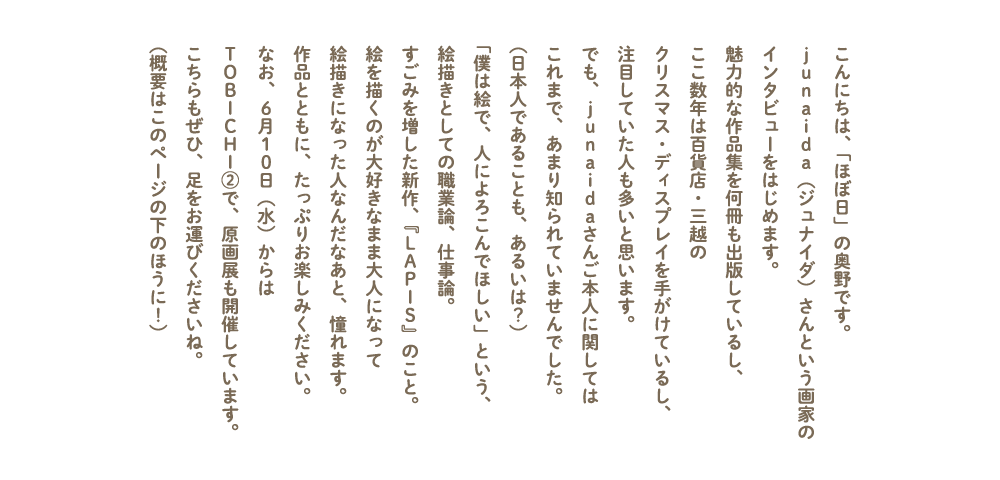 こんにちは、「ほぼ日」の奥野です。
junaida（ジュナイダ）さんという画家の
インタビューをはじめます。
魅力的な作品集を何冊も出版しているし、
ここ数年は百貨店・三越の
クリスマス・ディスプレイを手がけているし、
注目していた人も多いと思います。
でも、junaidaさんご本人に関しては
これまで、あまり知られていませんでした。
（日本人であることも、あるいは？）
「僕は絵で、人によろこんでほしい」という、
絵描きとしての職業論、仕事論。
すごみを増した新作、『LAPIS』のこと。
絵を描くのが大好きなまま大人になって
絵描きになった人なんだなあと、憧れます。
作品とともに、たっぷりお楽しみください。
なお、6月10日（水）からは
TOBICHI②で、原画展も開催しています。
こちらもぜひ、足をお運びくださいね。
（概要はこのページの下のほうに！）